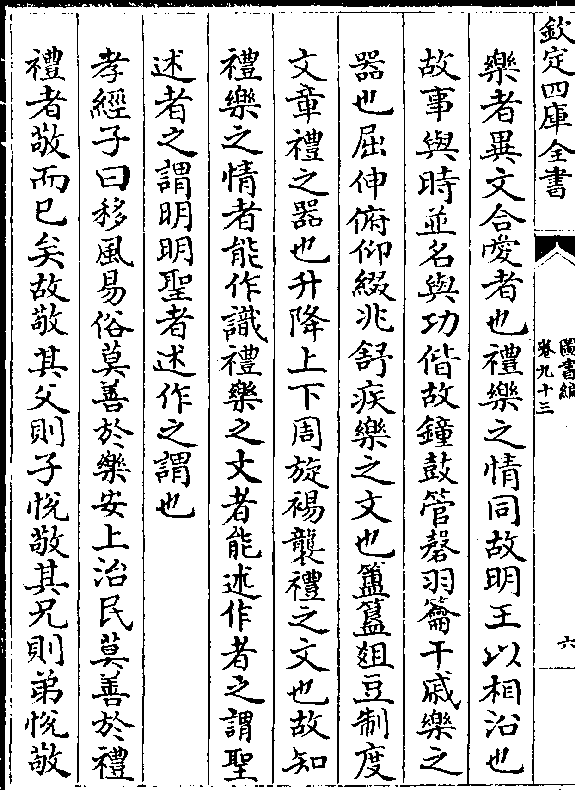 欽定四庫全書
圖書編
卷九十三
六
樂者異文合愛者也禮樂之情同故明王以相沿也
故事與時並名與功偕故鐘鼓管磬羽籥干戚樂之
器也屈伸俯仰綴兆舒疾樂之文也簠簋俎豆制度
文章禮之器也升降上下周旋裼襲禮之文也故知
禮樂之情者能作識禮樂之文者能述作者之謂聖
述者之謂明明聖者述作之謂也
孝經子曰移風易俗莫善於樂安上治民莫善於禮
禮者敬而已矣故敬其父則子悅敬其兄則弟悅敬